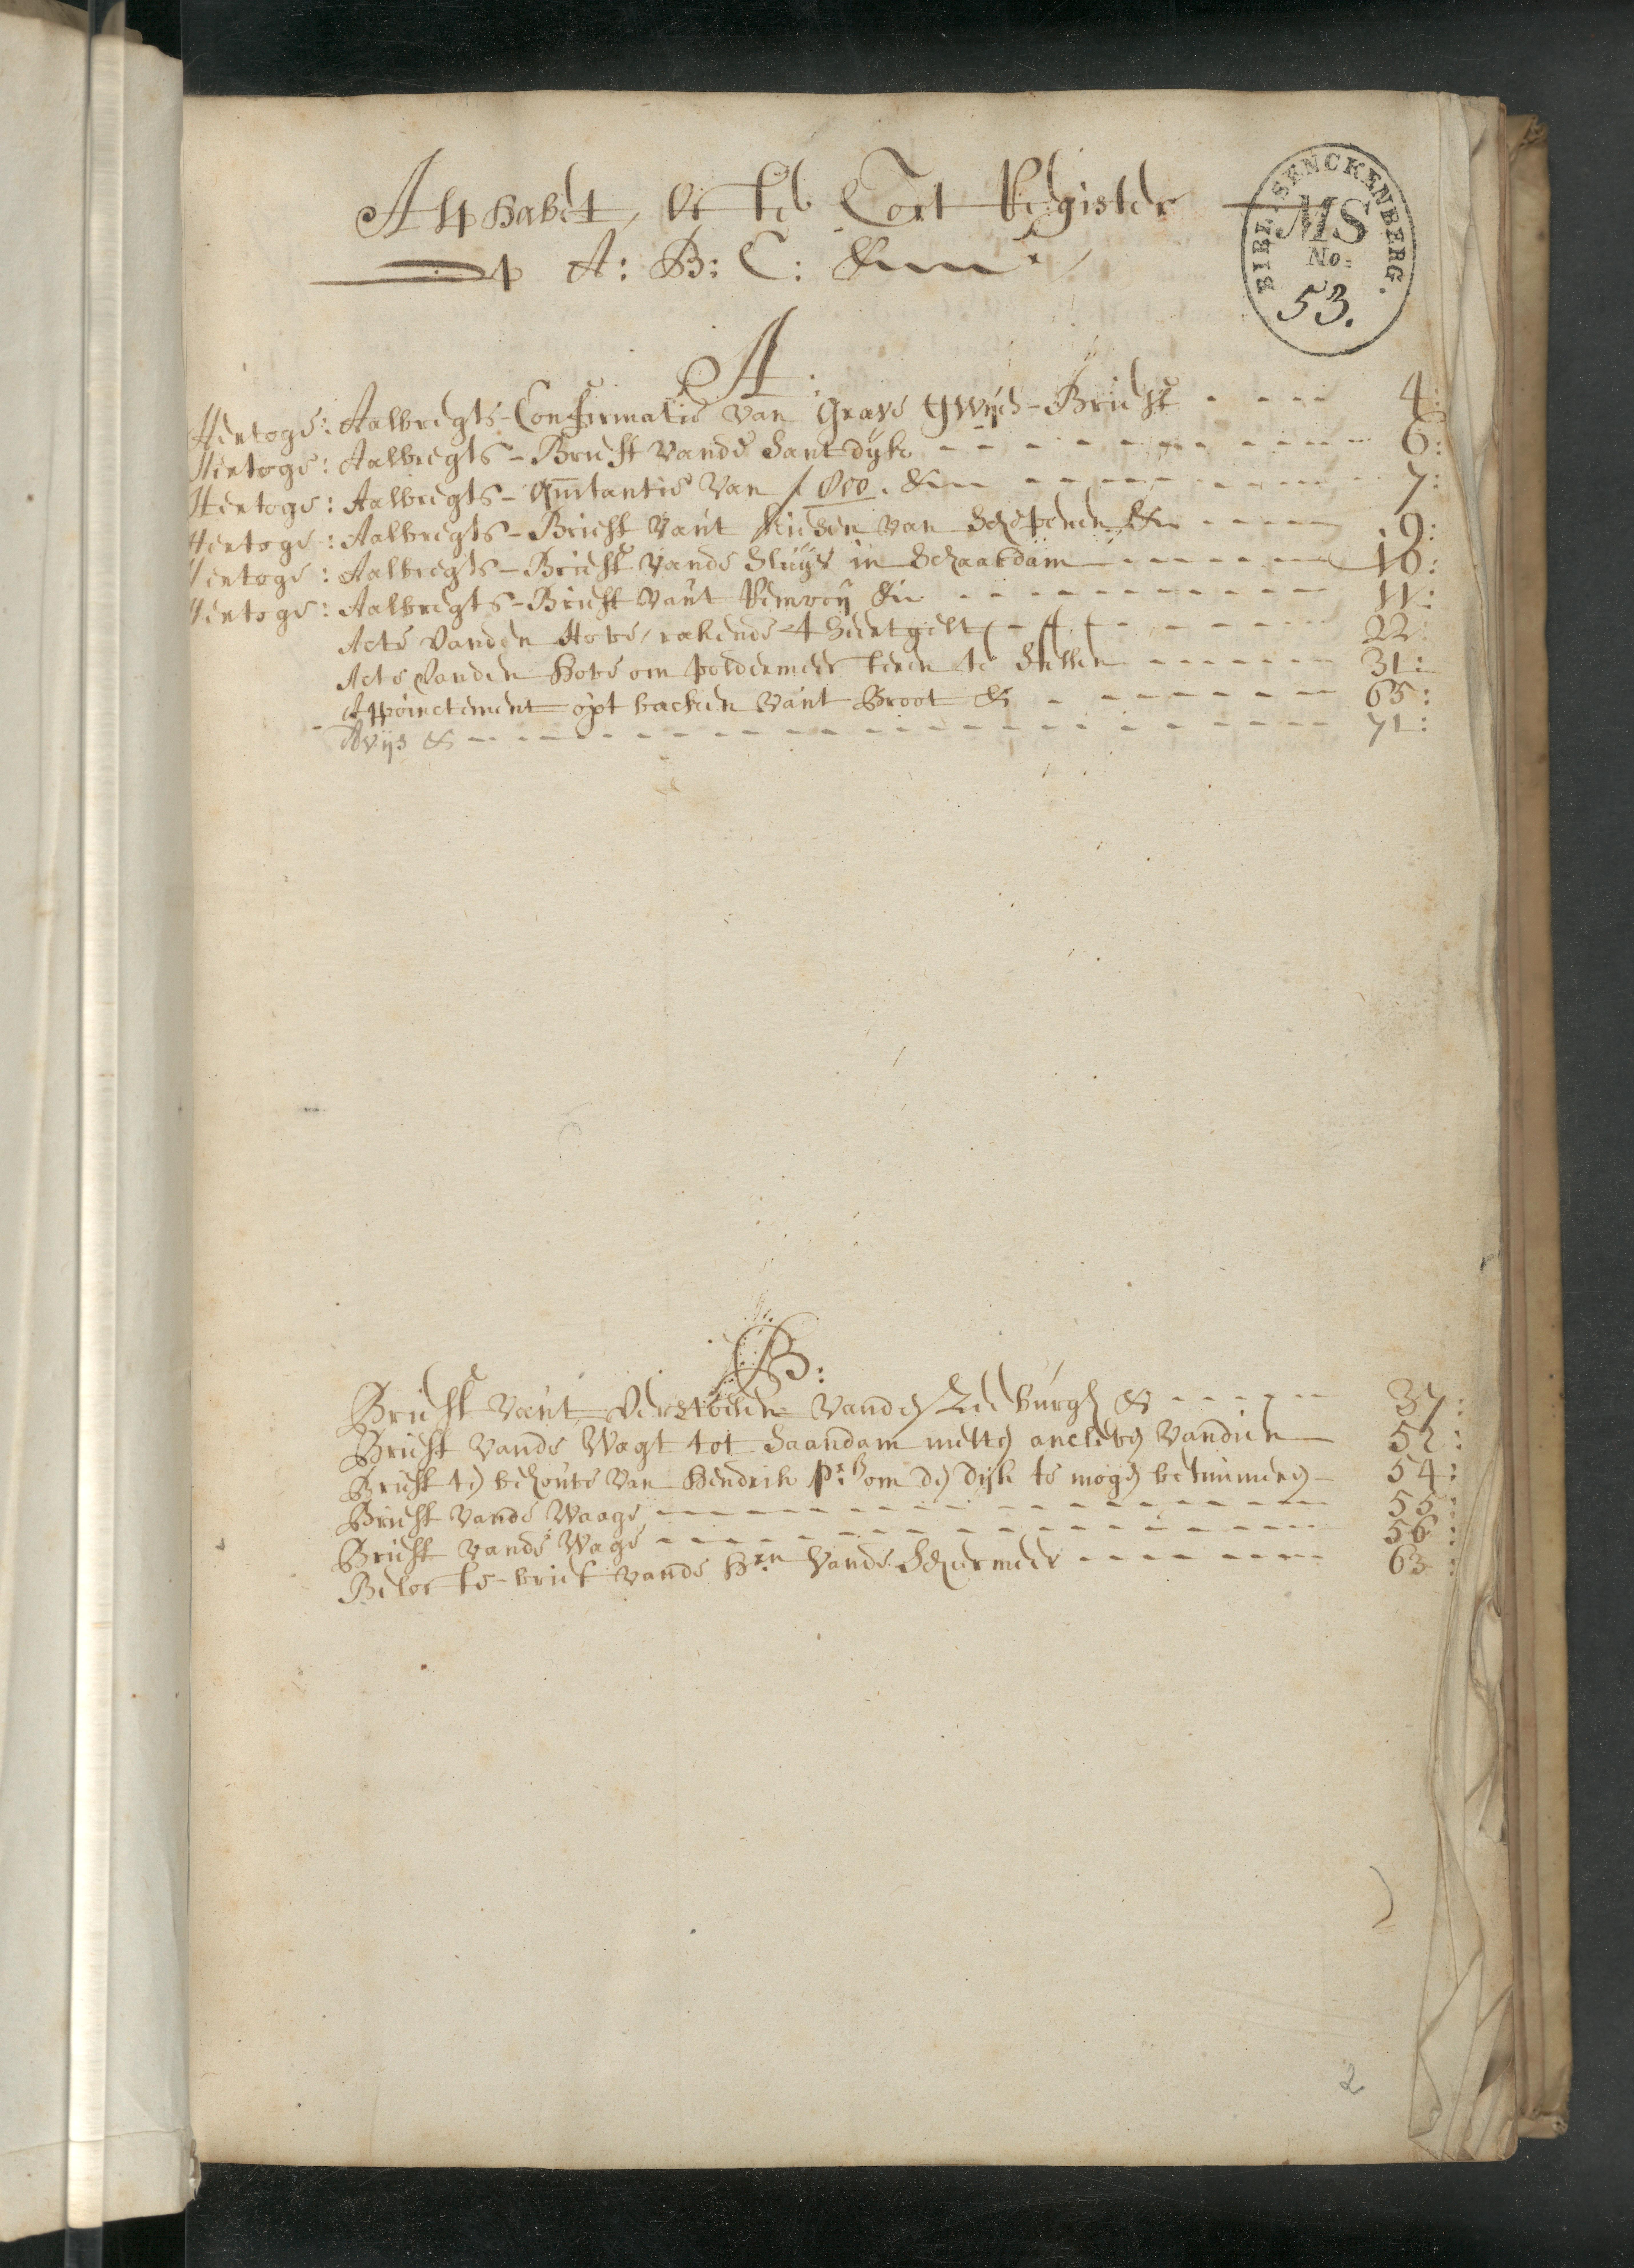 Alphabet, ofte Cort Register
op A: B: C: &c
BIBL. SENCKENBERG.
MS
No.
53.
A:
Hertoge: Aalbregts-Confirmatie van Grave Gwijds-Brieff 4:
Hertoge: Aalbregts-Brieff vande Santdijk 6:
Hertoge: Aalbregts-Quitantie van &c 7:
Hertoge: Aalbregts-Brieff vant kiesen van Schepenen &c 9:
Hertoge: Aalbregts-Brieff vande Sluijs in Schaardam 10:
Hertoge: Aalbregts-Brieff vant &c 11:
Acte vanden Hove, rakende 22:
Acte vanden Hove om poldermeesteren te stellen 31:
Appoinctement opt backen vant Broot & 65:
Avijs & 71:
B:
Brieff vant vanden & 37:
Brieff vande Wagt tot Saandam metten ancleven vandien 52:
Brieff ten behouve van Hendrik om den dijk te mogen betimmeren 54:
Brieff vande Waage 55:
Brieff vande Wage 56:
Belofte-brief vande Hrn vande Schermeer 63:
2